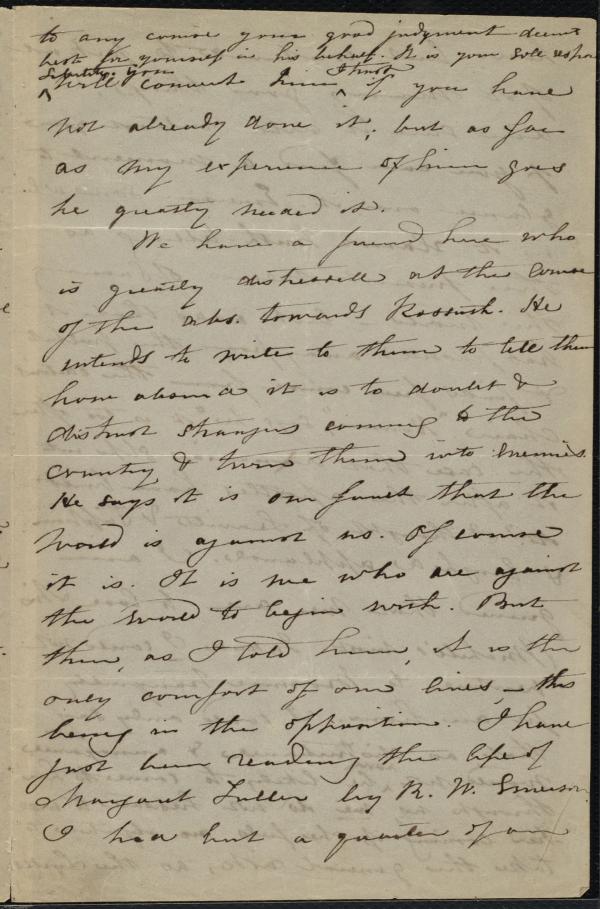 to any course your good judgment deems
best for yourself in his behalf. It is your sole respon
sibility. You
will convert him I trust if you have
not already done it; but as far
as my experience of him goes
he greatly needed it.
We have a friend here who
is greatly distressed at the course
of the abs. towards Kossuth. He
intends to write to them to tell them
how absurd it is to doubt &
distrust strangers coming to the
country & turn them into enemies.
He says it is our fault that the
world is against us. Of course
it is. It is we who are against
the world to begin with. But
then, as I told him, it is the
only comfort of our lives, – this
being in the opposition. I have
just been reading the life of
Margaret Fuller by R. W. Emerson
I had but a quarter of an